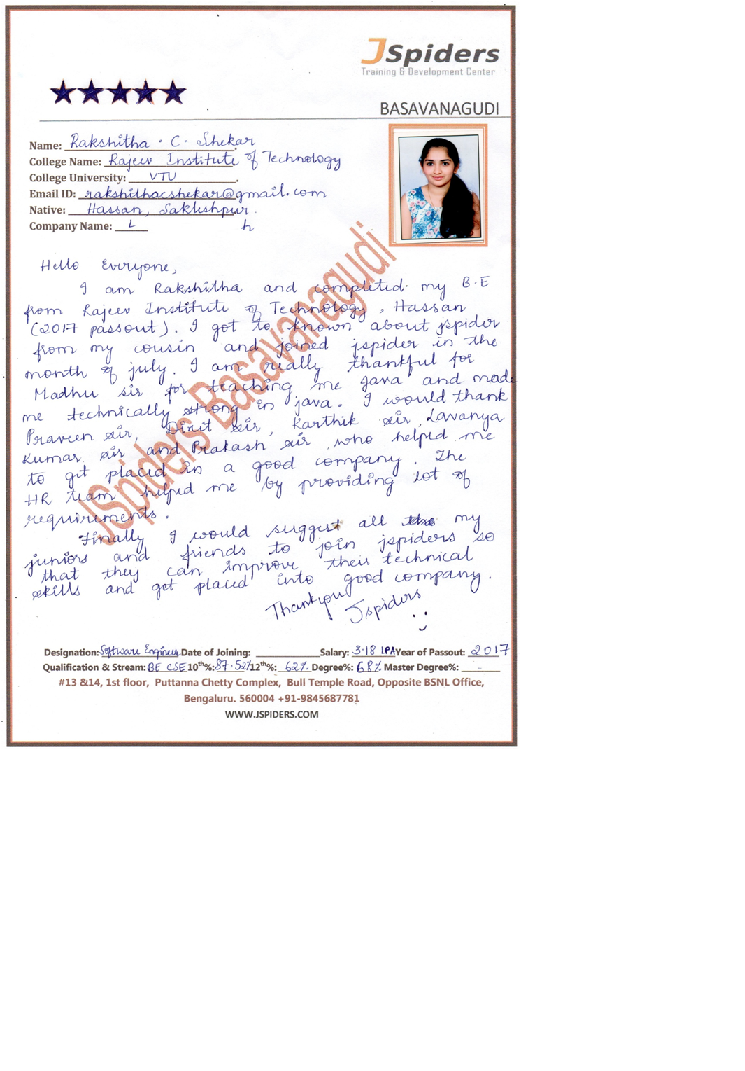 JSpiders
Training & Development Center
BASAVANAGUDI
Name: Rakshitha . C. Shekar
College Name: Rajeev Institute of Technology
College University: VTU
Email ID: rakshithacshekar@gmail.com
Native: Hassan, Saklishpur.
Company Name: L h
Hello Everyone,
I am Rakshitha and completed my B.E
from Rajeev Institute of Technology, Hassan
(2017 passout). I got to known about jspider
from my cousin and joined jspider in the
month of july. I am really thankful for
Madhu sir for teaching me java and made
me technically strong in java. I would thank
Praveen sir, Dixit sir, Karthik sir, Lavanya
Kumar sir and Prakash sir, who helped me
to get placed in a good company. The
HR team helped me by providing lot of
requirements.
Finally I would suggest all the my
juniors and friends to join jspiders so
that they can improve their technical
skills and get placed into good company.
Thankyou
Jspiders
JSpiders Basavanagudi
Designation: Software Engineer Date of Joining: Salary: 3.18 LPA Year of Passout: 2017
Qualification & Stream: BE CSE 10th%: 87.52% 12th%: 62% Degree%: 68% Master Degree%: -
#13 &14, 1st floor, Puttanna Chetty Complex, Bull Temple Road, Opposite BSNL Office,
Bengaluru. 560004 +91-9845687781
WWW.JSPIDERS.COM